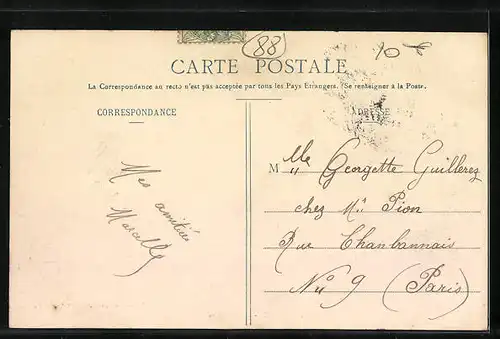 88
10 f
CARTE POSTALE
La Correspondance au recto n'est pas acceptée par tous les Pays Etrangers. (Se renseigner à la Poste.
CORRESPONDANCE
ADRESSE
Mes amitiés
Marcelle
M lle Georgette Guillerez
chez Mr Pion
Rue Chanbannais
No 9 (Paris)